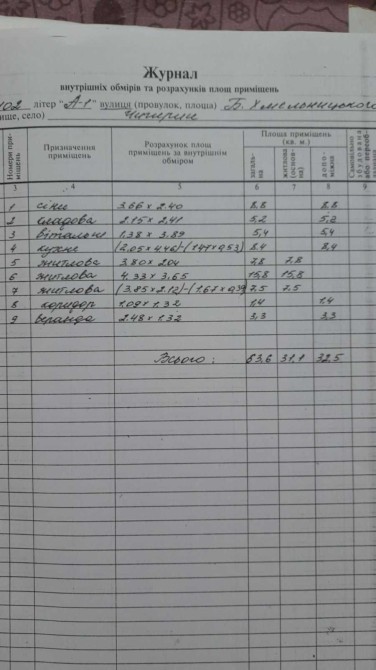 Журнал
внутрішніх обмірів та розрахунків площ приміщень
102 літер "А-1" вулиця (провулок, площа) Б. Хмельницького
ище, село) Чигирин
Номери приміщень Призначення приміщень Розрахунок площ приміщень за внутрішнім обміром Площа приміщень (кв. м.) загальна житлова (основна) допоміжна Самовільно збудована або
3 4 5 6 7 8 9
1 сіни 3.66 х 2.40 8,8 8.8
2 кладова 2.15 х 2.41 5,2 5,2
3 вітальня 1.38 х 3.89 5,4 5,4
4 кухня (2.05 х 4.46)-(1.41 х 0.53) 8.4 8,4
5 житлова 3.80 х 2.04 7.8
6 житлова 4.33 х 3.65 15,8 15,8
7 житлова (3.85 х 2.12)-(1.67 х 0.39) 7.5
8 коридор 1.09 х 1.32 1.4 1.4
9 веранда 2.48 х 1.32 3,3 3.3
Всього: 63,6 31,1 32.5